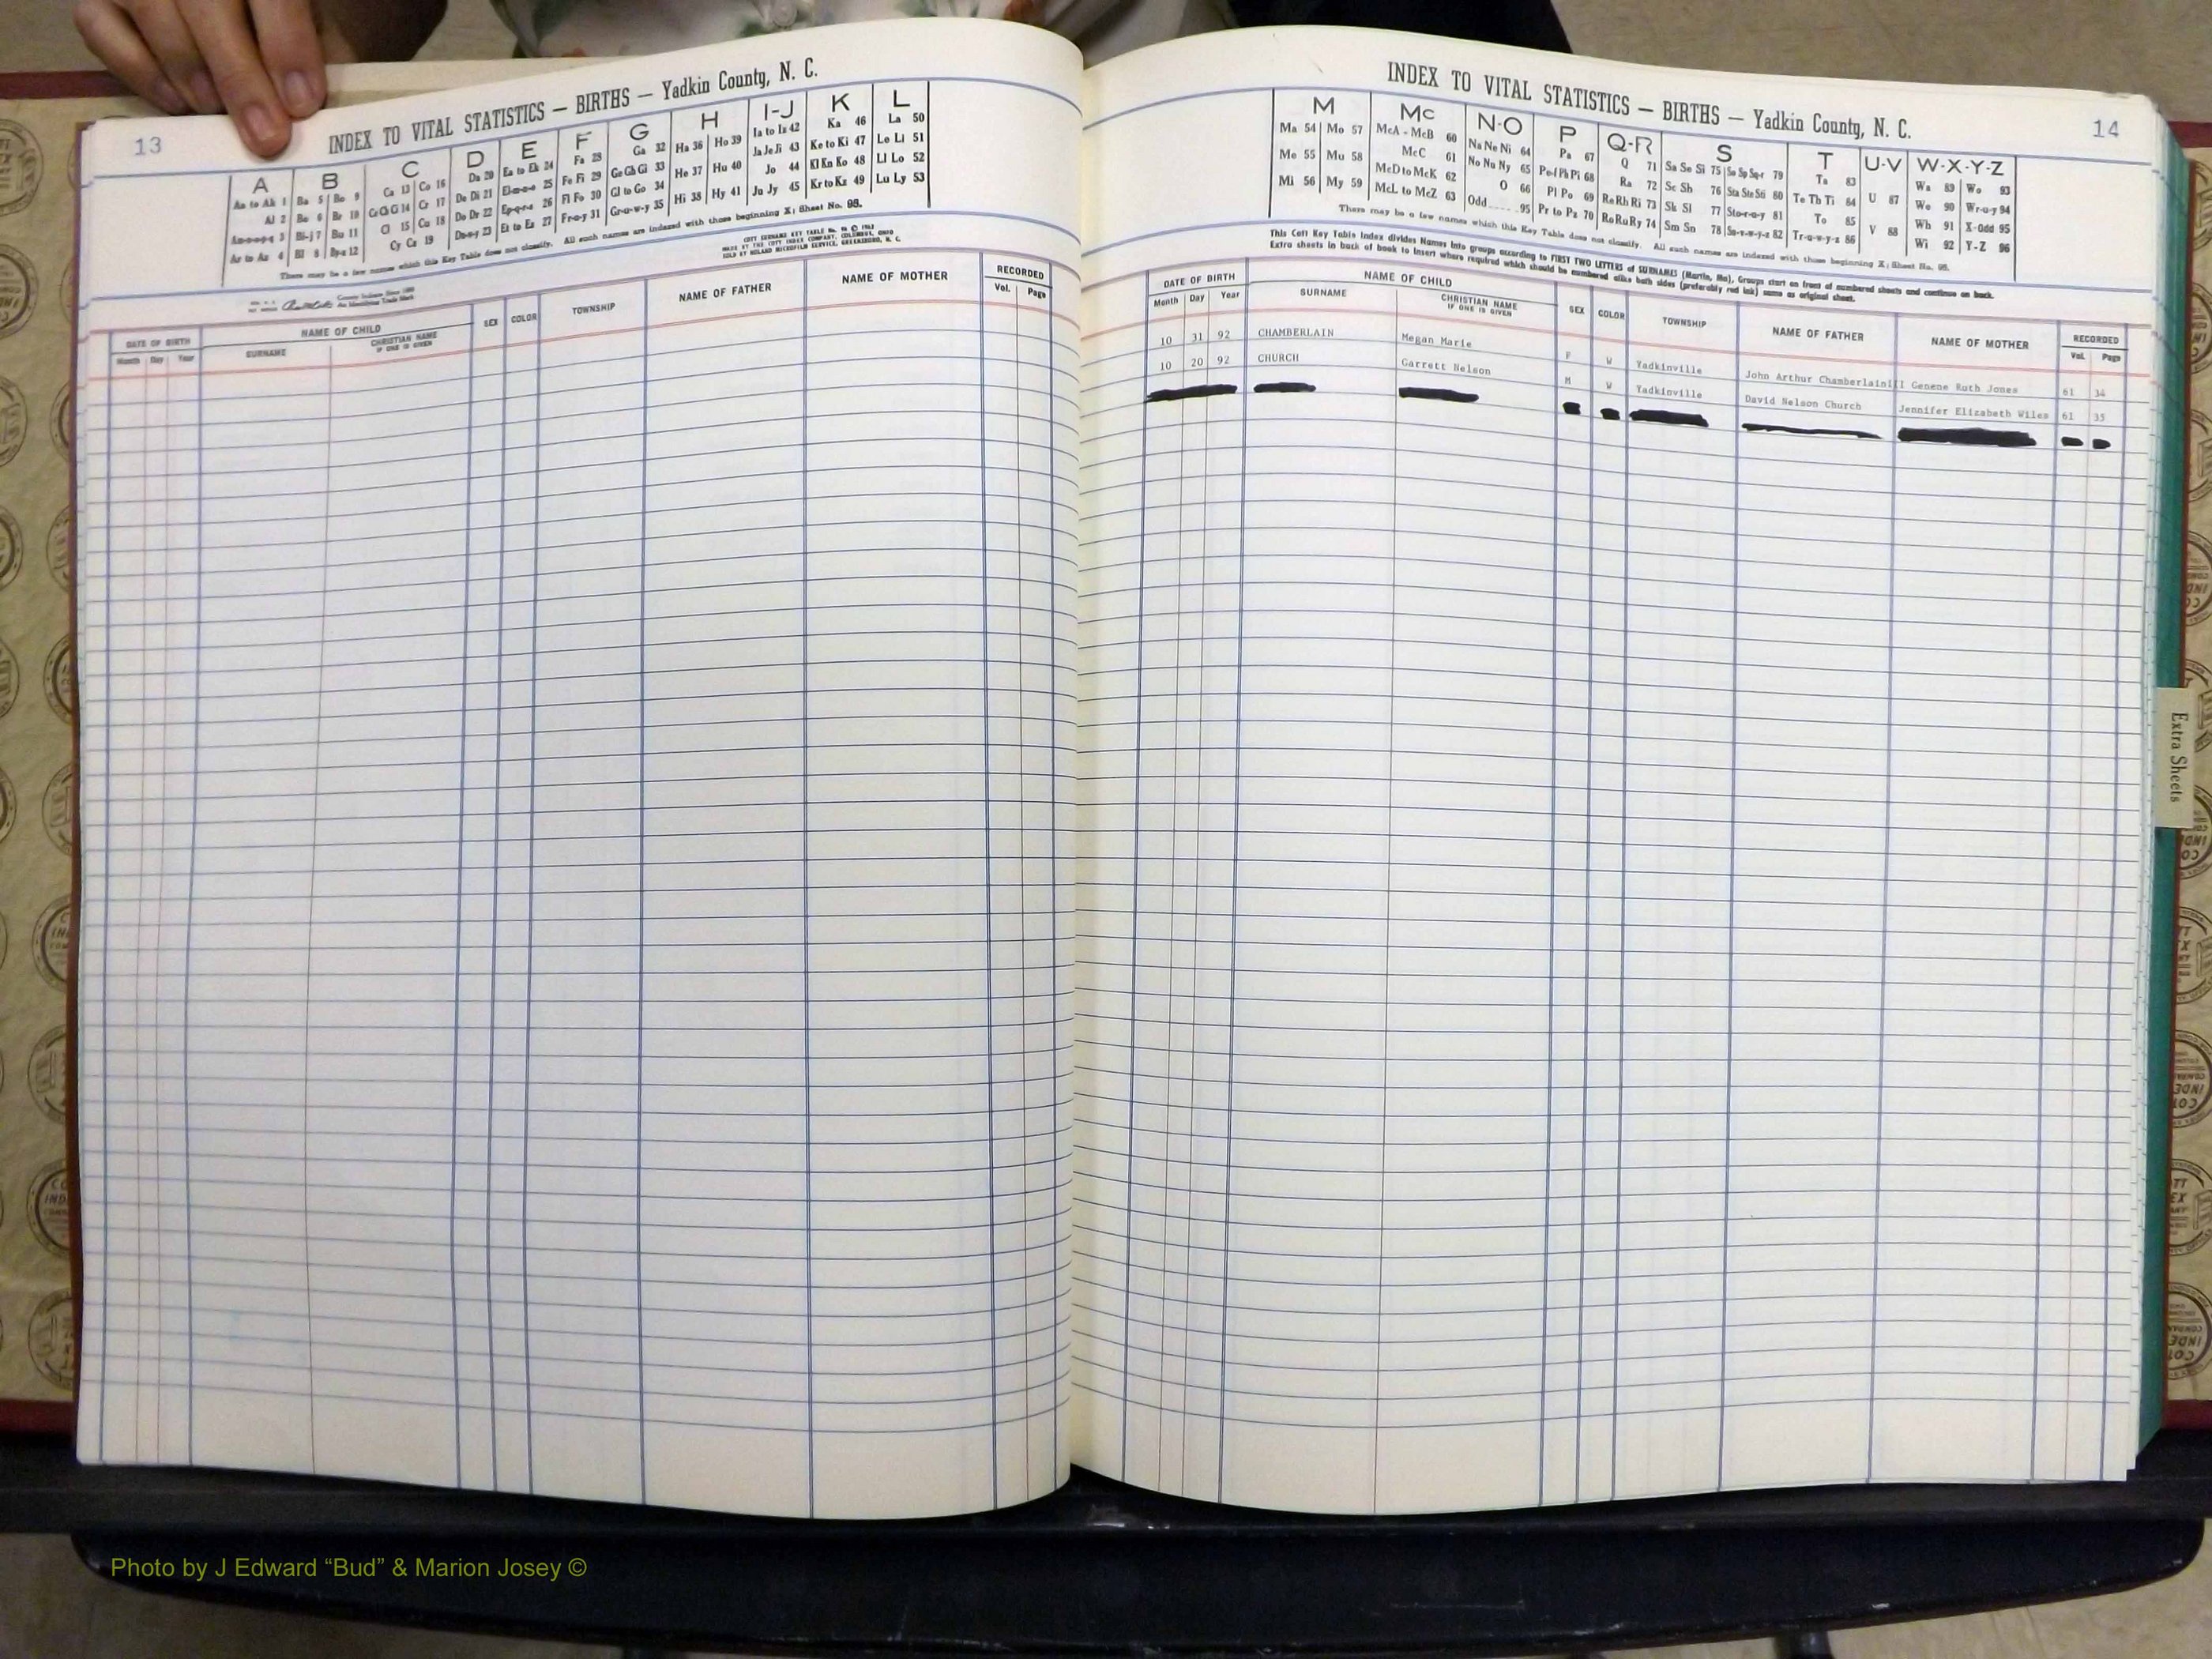 13
INDEX TO VITAL STATISTICS — BIRTHS — Yadkin County, N. C.
A B C D E F G H I-J K L
Aa to Ak 1 Ba 5 Bo 9 Ca 13 Co 16 Da 20 Ea to Ek 24 Fa 28 Ga 32 Ha 36 Ho 39 Ia to Iz 42 Ka 46 La 50
Al 2 Be 6 Br 10 Ce Ch Ci 14 Cr 17 De Di 21 El-m-n-o 25 Fe Fi 29 Ge Gh Gi 33 He 37 Hu 40 Ja Je Ji 43 Ke to Ki 47 Le Li 51
Am-n-o-p-q 3 Bi-j 7 Bu 11 Cl 15 Cu 18 Do Dr 22 Ep-q-r-s 26 Fl Fo 30 Gl to Go 34 Hi 38 Hy 41 Jo 44 Kl Kn Ko 48 Ll Lo 52
Ar to Az 4 Bl 8 By-z 12 Cy Cz 19 Du-w-y 23 Et to Ez 27 Fr-u-y 31 Gr-u-w-y 35 Ju Jy 45 Kr to Kz 49 Lu Ly 53
There may be a few names which this Key Table does not classify. All such names are indexed with those beginning X; Sheet No. 98.
COTT SURNAME KEY TABLE
MADE BY THE COTT INDEX COMPANY, COLUMBUS, OHIO
SOLD BY HOLAND MICROFILM SERVICE, GREENSBORO, N. C.
County Indexes Since 1888
An Identifying Trade Mark
DATE OF BIRTH NAME OF CHILD SEX COLOR TOWNSHIP NAME OF FATHER NAME OF MOTHER RECORDED
Month Day Year SURNAME CHRISTIAN NAME IF ONE IS GIVEN Vol. Page
INDEX TO VITAL STATISTICS — BIRTHS — Yadkin County, N. C.
14
M Mc N-O P Q-R S T U-V W-X-Y-Z
Ma 54 Mo 57 McA - McB 60 Na Ne Ni 64 Pa 67 Q 71 Sa Se Si 75 So Sp Sq-r 79 Ta 83 U 87 Wa 89 Wo 93
Me 55 Mu 58 McC 61 No Nu Ny 65 Pe-f Ph Pi 68 Ra 72 Sc Sh 76 Sta Ste Sti 80 Te Th Ti 84 V 88 We 90 Wr-u-y 94
Mi 56 My 59 McD to McK 62 O 66 Pl Po 69 Re Rh Ri 73 Sk Sl 77 Sto-r-u-y 81 To 85 Wh 91 X-Odd 95
McL to McZ 63 Odd 95 Pr to Pz 70 Ro Ru Ry 74 Sm Sn 78 Su-v-w-y-z 82 Tr-u-w-y-z 86 Wi 92 Y-Z 96
There may be a few names which this Key Table does not classify. All such names are indexed with those beginning X; Sheet No. 98.
This Cott Key Table Index divides Names into groups according to FIRST TWO LETTERS of SURNAMES (Martin, Ma), Groups start on front of numbered sheets and continue on back.
Extra sheets in back of book to insert where required which should be numbered alike both sides (preferably red ink) same as original sheet.
DATE OF BIRTH NAME OF CHILD SEX COLOR TOWNSHIP NAME OF FATHER NAME OF MOTHER RECORDED
Month Day Year SURNAME CHRISTIAN NAME IF ONE IS GIVEN Vol. Page
10 31 92 CHAMBERLAIN Megan Marie F W Yadkinville John Arthur Chamberlain III Genene Ruth Jones 61 34
10 20 92 CHURCH Garrett Nelson M W Yadkinville David Nelson Church Jennifer Elizabeth Wiles 61 35
Extra Sheets
Photo by J Edward “Bud” & Marion Josey ©